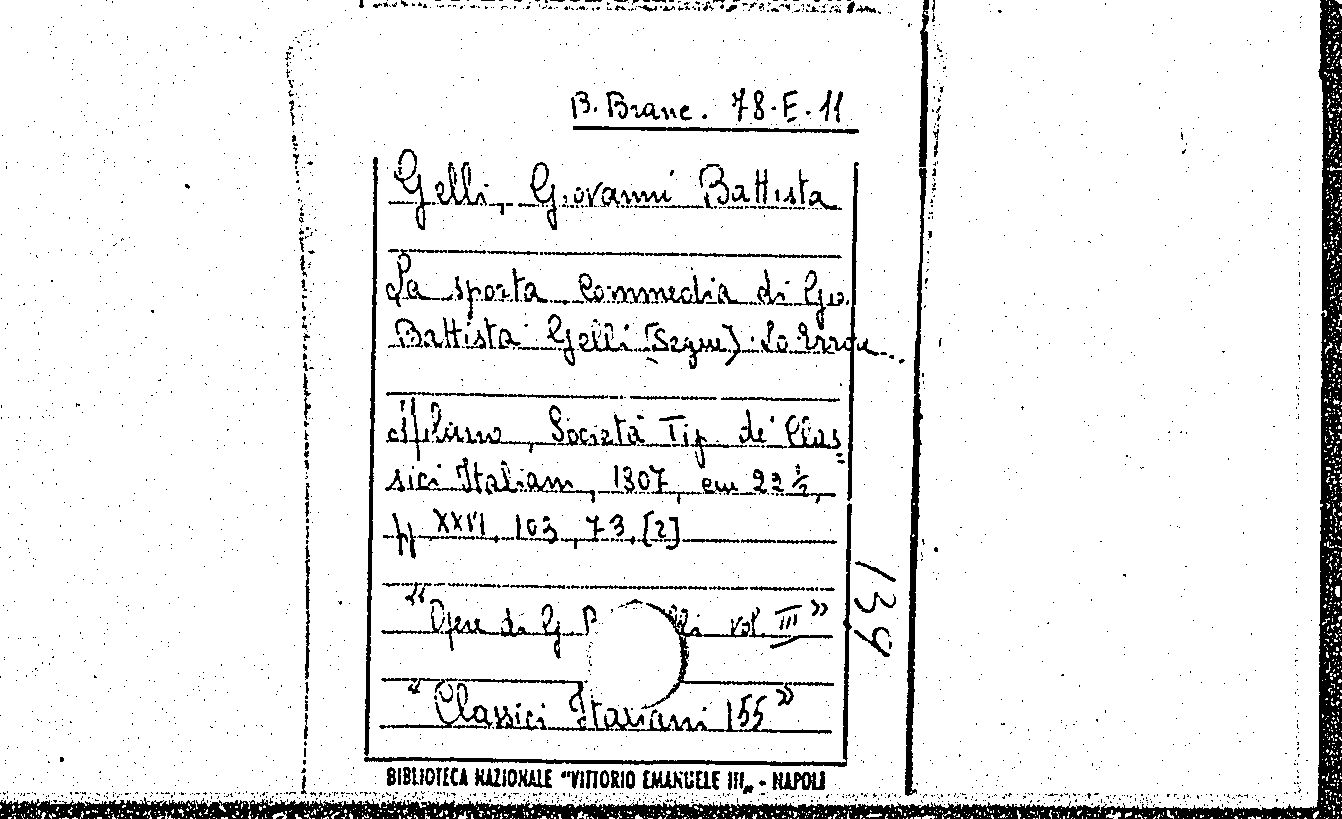 B. Branc. 78.E.11
Gelli, Giovanni Battista
La sporta Commedia di Gio.
Battista Gelli [Segue]. Lo Errore...
Milano, Società Tip. de' Clas
sici Italiani, 1807, cm 22 ½,
pp XXVI, 103, 73, [2]
“Opere di G. lli vol. III”
“Classici Italiani 155”
BIBLIOTECA NAZIONALE “VITTORIO EMANUELE III„ - NAPOLI
139